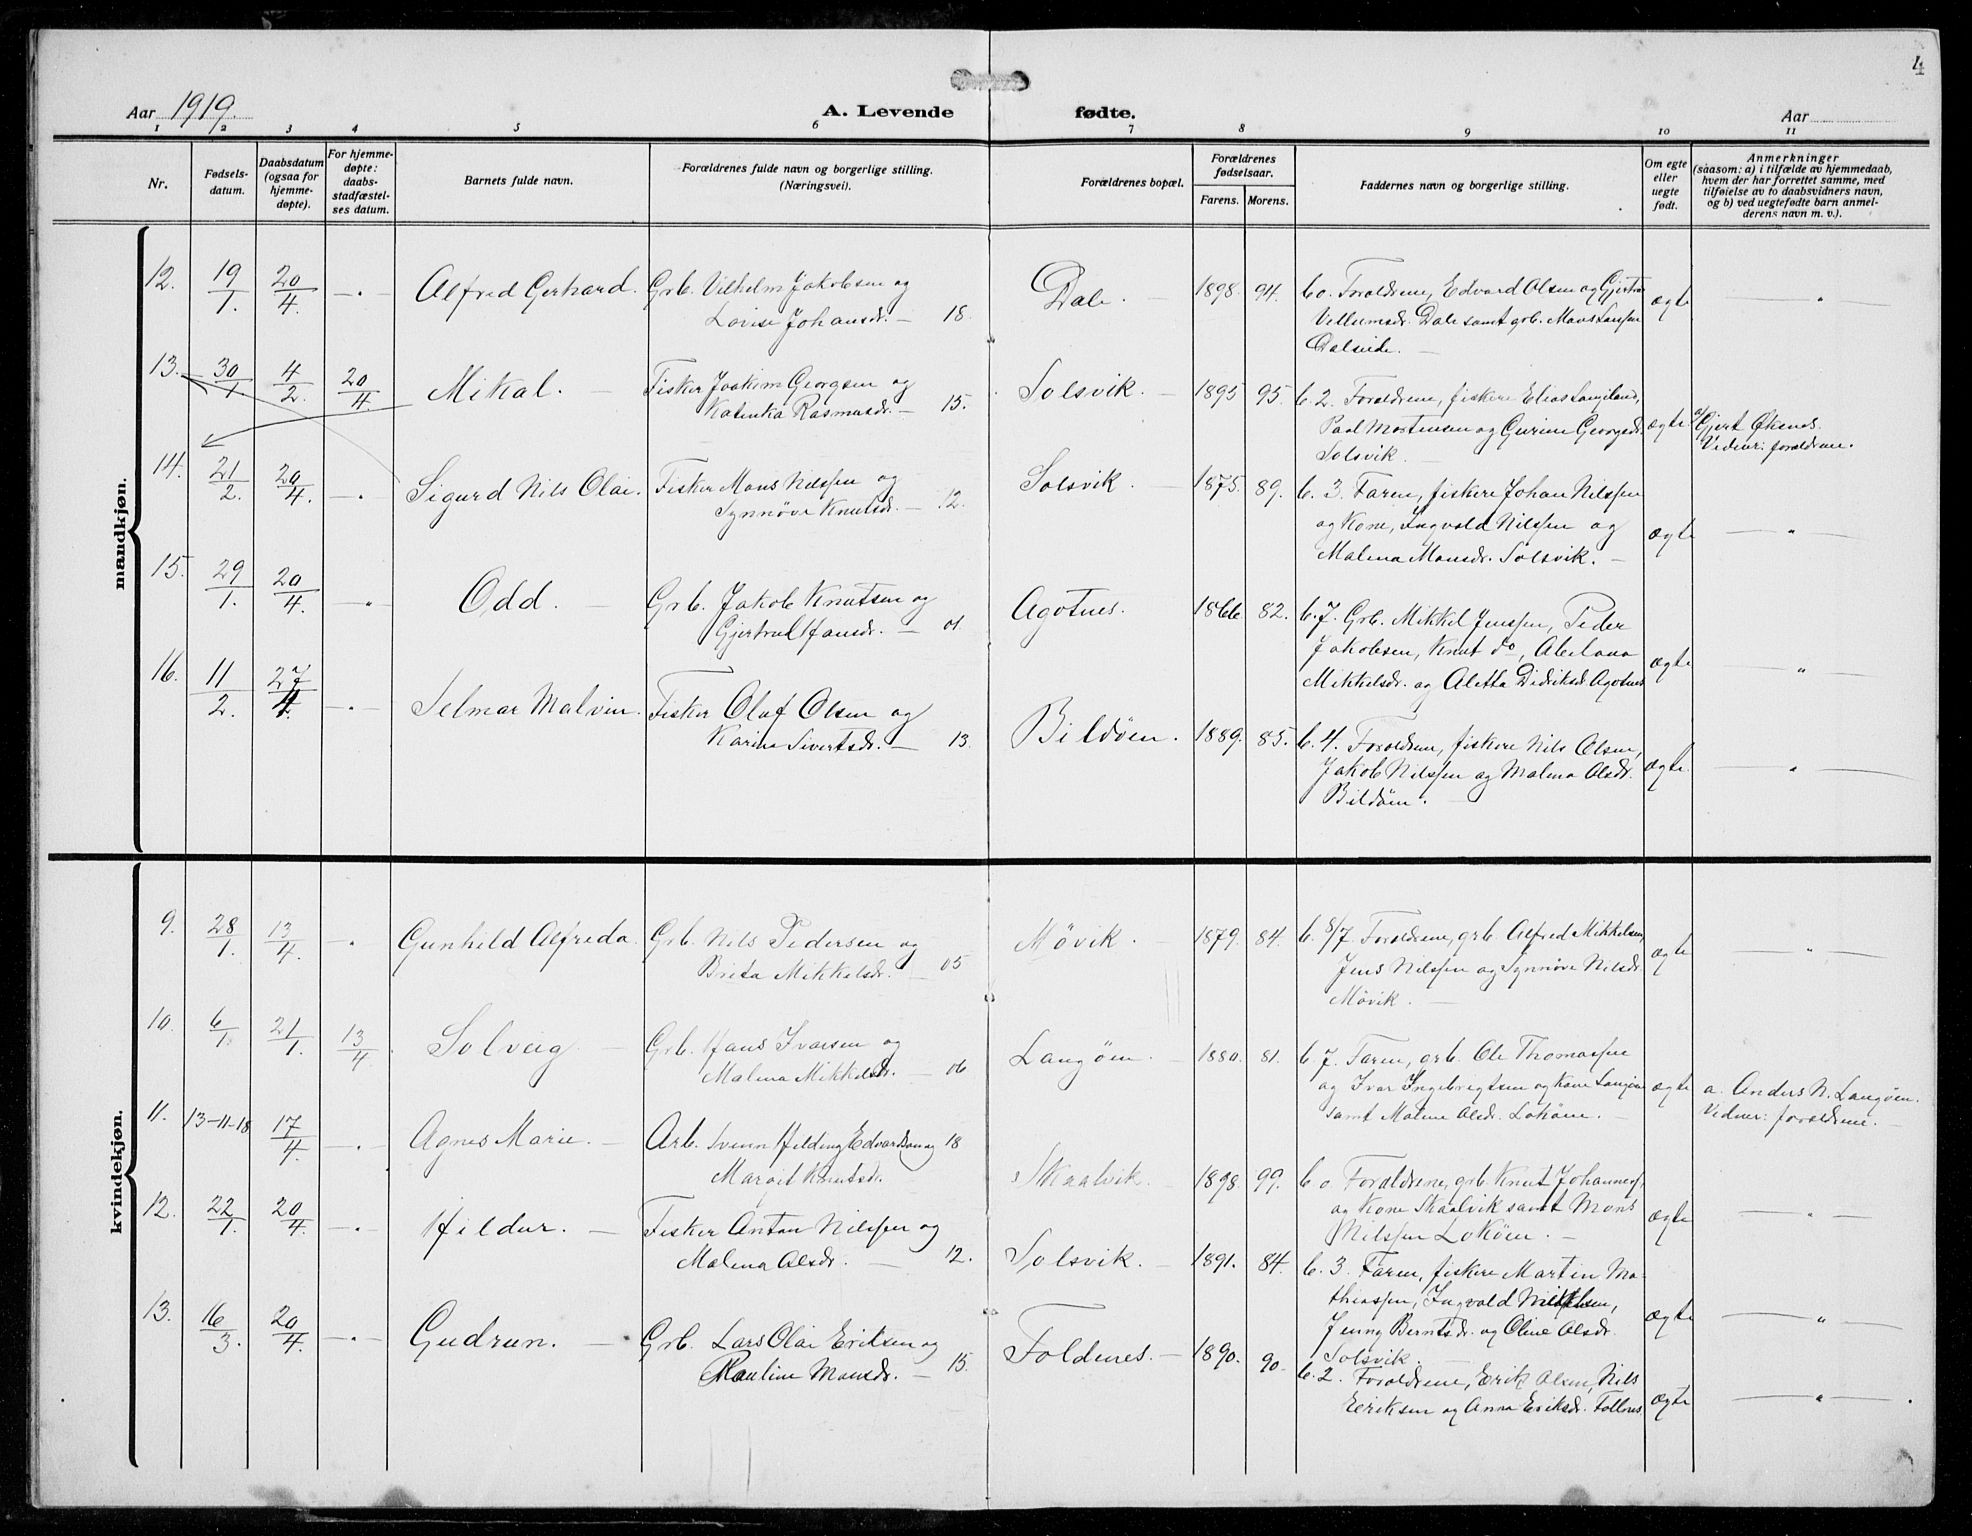 4
Aar 1919.
A. Levende fødte.
Aar
1 2 3 4 5 6 7 8 9 10 11
Nr.
Fødsels-
datum.
Daabsdatum
(ogsaa for
hjemme-
døpte).
For hjemme-
døpte:
daabs-
stadfæstel-
ses datum.
Barnets fulde navn.
Forældrenes fulde navn og borgerlige stilling.
(Næringsvei).
Forældrenes bopæl.
Forældrenes
fødselsaar.
Farens. Morens.
Faddernes navn og borgerlige stilling.
Om egte
eller
uegte
født.
Anmerkninger
(saasom: a) i tilfælde av hjemmedaab,
hvem der har forrettet samme, med
tilføielse av to daabsvidners navn,
og b) ved uegtefødte barn anmel-
derens navn m. v.).
mandkjøn.
12. 19/1. 20/4. —"— Alfred Gerhard. Grb. Vilhelm Jakobsen og
Lovise Johansdr. — 18.
Dale. 1898. 94. b. 0. Forældrene, Edvard Olsen og Gjertru
Vellumsdr. Dale samt grb. Mons Larssen
Dalseide. —
ægte —"—
13. 30/1 4/2. 20/4. Mikal. — Fisker Joakim Georgsen og
Katinka Rasmusdr. — 15.
Solsvik. — 1895 95. b. 2. Forældrene, fiskere Elias Langeland,
Paal Mortensen og Gurine Georgsdr.
Solsvik. —
ægte a/ Gjert Øksnes.
Vidner: forældrene.
14. 21/2. 20/4. —"— Sigurd Nils Olai. Fisker Mons Nilssen og
Synnøve Knutsdr. — 12.
Solsvik. — 1875. 89. b. 3. Faren, fiskere Johan Nilssen
og Kone, Ingvald Nilssen og
Malena Monsdr. Solsvik. —
ægte —"—
15. 29/1. 20/4. —"— Odd. — Grb. Jakob Knutsen og
Gjertrud Hansdr. — 01.
Agotnes. 1866 82. b. 7. Grb. Mikkel Jenssen, Peder
Jakobsen, Knut do, Abelona
Mikkelsdr. og Aletta Didriksdr. Agotnes
ægte —"—
16. 11/2. 27/4. —"— Selmar Malvin. Fisker Olaf Olsen og
Karina Sivertsdr. — 13.
Bildøen. 1889. 85. b. 4. Forældrene, fiskere Nils Olsen,
Jakob Nilssen og Malena Olsdr.
Bildøen. —
ægte. —"—
kvindekjøn.
9. 28/1. 13/4. —"— Gunhild Alfreda. Grb. Nils Pedersen og
Brita Mikkelsdr. — 05
Møvik. — 1879. 84. b. 8/7 Forældrene, grb. Alfred Mikkelsen,
Jens Nilssen og Synnøve Nilsdr.
Møvik. —
ægte —"—
10. 6/1. 21/1. 13/4. Solveig — Grb. Hans Ivarsen og
Malena Mikkelsdr. — 06
Langøen. — 1880. 81. b. 7. Faren, grb. Ole Thomassen
og Ivar Ingebrigtsen og Kone Langøen
samt Malene Olsdr. Lokøen. —
ægte a. Anders N. Langøen.
Vidner: forældrene. —
11. 13-11-18 17/4. —"— Agnes Marie. — Arb. Svenn Hilding Edvardsson og 18
Margit Knutsdr.
Skaalvik. 1898. 99. b. 0. Forældrene, grb. Knut Johanness.
og Kone Skaalvik samt Mons
Nilssen Lokøen. —
ægte —"—
12. 22/1. 20/4. —"— Hildur. — Fisker Anton Nilssen og
Malena Olsdr. — 12.
Solsvik. — 1891. 84. b. 3. Faren, fiskere Martin Ma-
thiassen, Ingvald
Jenny Berntsdr. og Oline Olsdr.
Solsvik. —
ægte —"—
13. 16/3. 20/4. —"— Gudrun. — Grb. Lars Olai Eriksen og
Pauline Monsdr. — 15.
Foldnes. — 1890. 90. b. 2. Forældrene, Erik Olsen, Nils
Eriksen og Anna Eriksdr. Follnes
ægte —"—